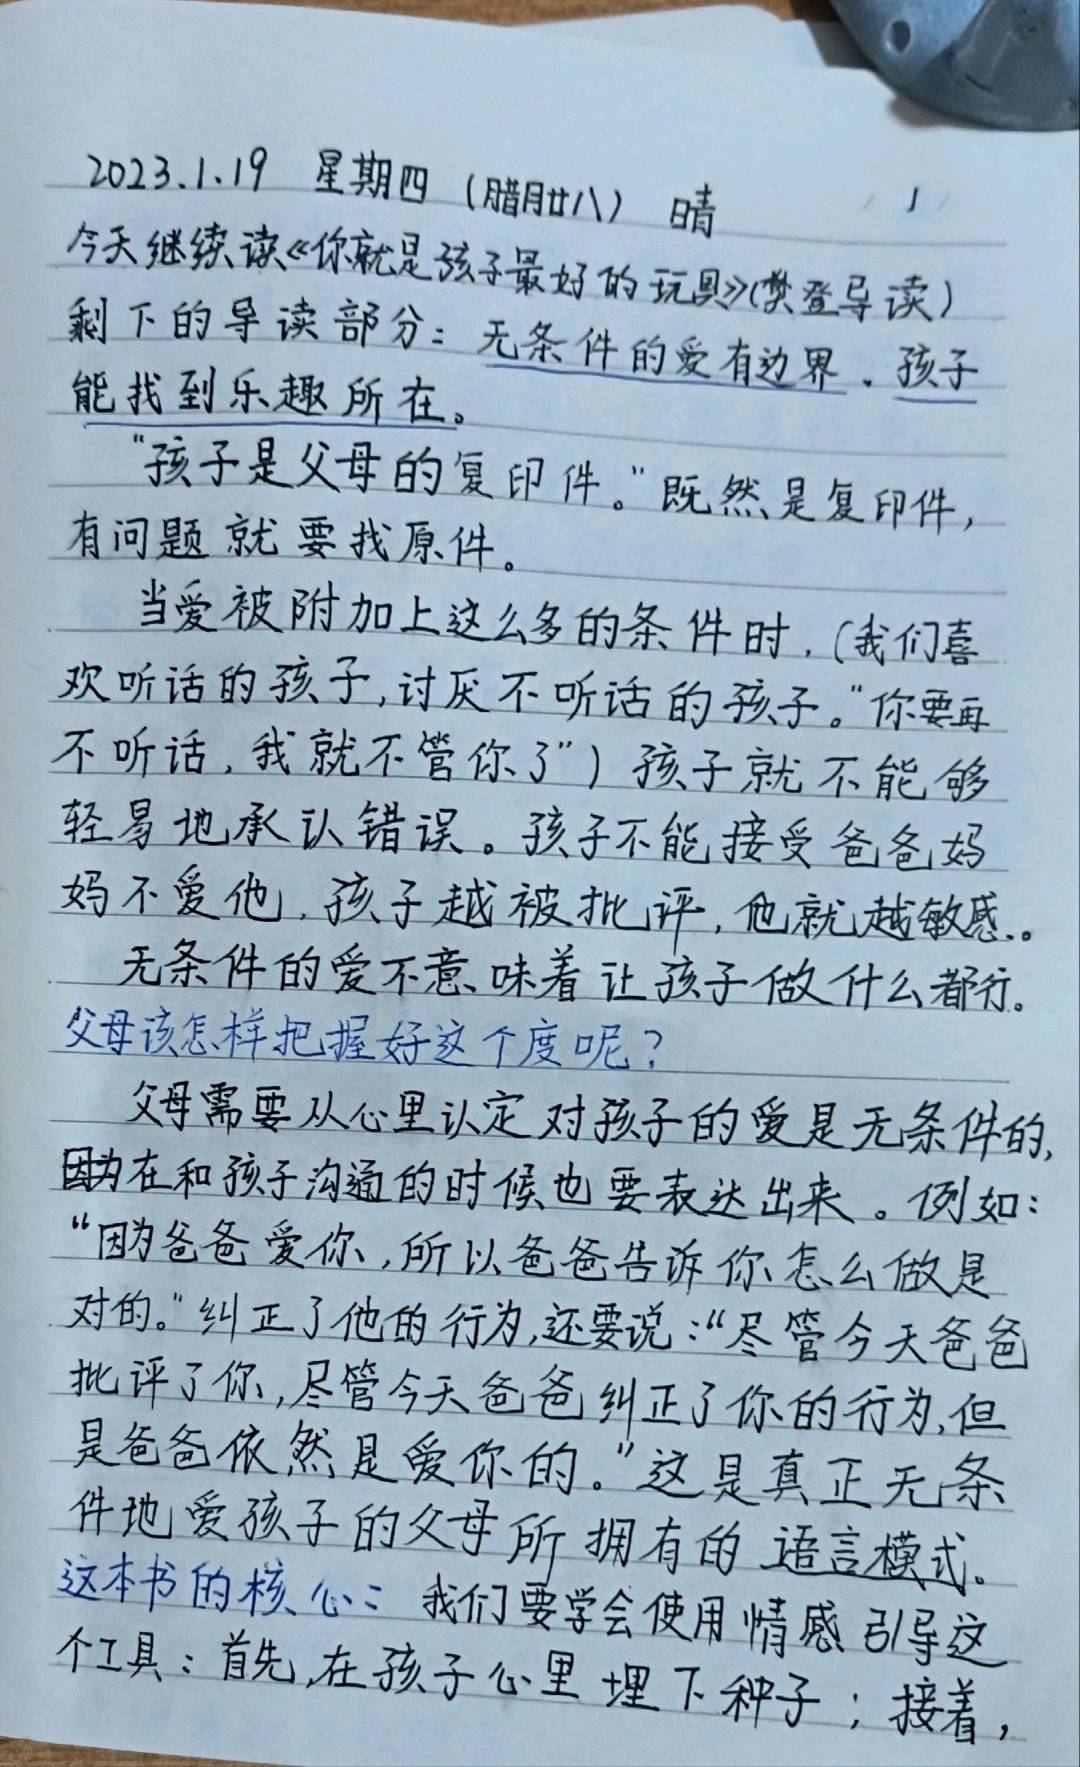 2023.1.19 星期四（腊月廿八） 晴 1
今天继续读《你就是孩子最好的玩具》(樊登导读)
剩下的导读部分：无条件的爱有边界。孩子
能找到乐趣所在。
“孩子是父母的复印件。”既然是复印件，
有问题就要找原件。
当爱被附加上这么多的条件时，(我们喜
欢听话的孩子，讨厌不听话的孩子。“你要再
不听话，我就不管你了”) 孩子就不能够
轻易地承认错误。孩子不能接受爸爸妈
妈不爱他，孩子越被批评，他就越敏感。
无条件的爱不意味着让孩子做什么都行。
父母该怎样把握好这个度呢？
父母需要从心里认定对孩子的爱是无条件的，
因为在和孩子沟通的时候也要表达出来。例如：
“因为爸爸爱你，所以爸爸告诉你怎么做是
对的。”纠正了他的行为，还要说：“尽管今天爸爸
批评了你，尽管今天爸爸纠正了你的行为，但
是爸爸依然是爱你的。”这是真正无条
件地爱孩子的父母所拥有的语言模式。
这本书的核心：我们要学会使用情感引导这
个工具：首先，在孩子心里埋下种子；接着，